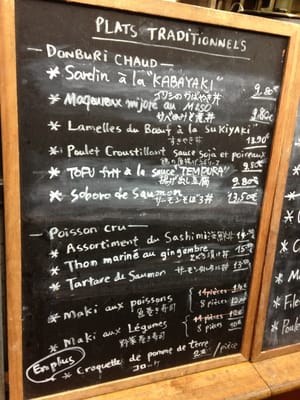 PLATS TRADITIONNELS
— DONBURI CHAUD —
* Sardin à la "KABAYAKI"
イワシのかばやき丼 9.80€
* Maquereux mijoré au MISO
サバみそ煮丼 9.80€
* Lamelles du Bœuf à la SUKIYAKI
すきやき丼 13.90€
* Poulet Croustillant sauce soja et poireaux
* TOFU frit à la sauce "TEMPURA"
揚げ出し豆腐 9.80€
* Soboro de Saumon
サーモンそぼろ丼 13.50€
— Poisson cru —
* Assortiment du Sashimi
* Thon mariné au gingembre
* Tartare de Saumon
* Maki aux poissons
魚巻き寿司
14 pièces
8 pièces
* Maki aux Légumes
野菜巻き寿司
14 pièces
8 pièces 10€
En plus
* Croquette de pomme de terre
コロッケ 2€ / pièce